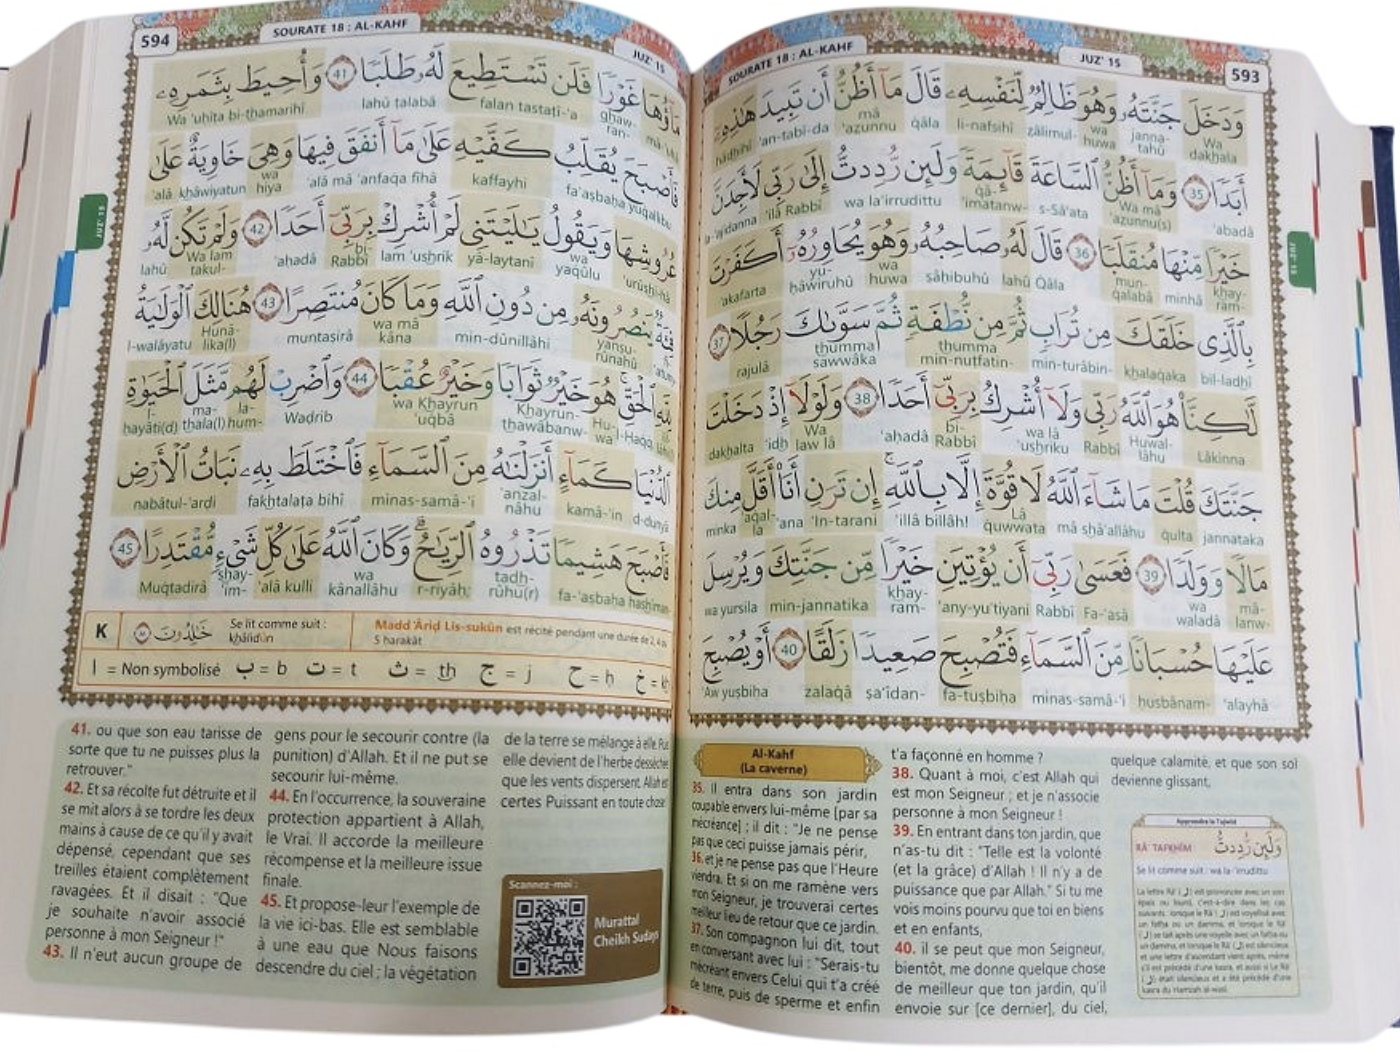 SOURATE 18 : AL-KAHF
JUZ' 15
593
وَدَخَلَ جَنَّتَهُۥ وَهُوَ ظَالِمٌ لِّنَفْسِهِۦ قَالَ مَآ أَظُنُّ أَن تَبِيدَ هَٰذِهِۦٓ
Wa dakhala janna-tahû wa huwa zâlimul- li-nafsihî qâla mâ 'azunnu 'an-tabî-da hâdhihî
أَبَدًا 35 وَمَآ أَظُنُّ ٱلسَّاعَةَ قَآئِمَةً وَلَئِن رُّدِدتُّ إِلَىٰ رَبِّى لَأَجِدَنَّ
'abadâ Wa mâ 'azunnu(s) s-Sâ'ata qâ-'imatanw- wa la'irrudittu 'ilâ Rabbî la-'ajidanna
خَيْرًا مِّنْهَا مُنقَلَبًا 36 قَالَ لَهُۥ صَاحِبُهُۥ وَهُوَ يُحَاوِرُهُۥٓ أَكَفَرْتَ
khay-ram- minhâ mun-qalabâ Qâla lahû sâhibuhû wa huwa yu-hâwiruhû 'akafarta
بِٱلَّذِى خَلَقَكَ مِن تُرَابٍ ثُمَّ مِن نُّطْفَةٍ ثُمَّ سَوَّىٰكَ رَجُلًا 37
bil-ladhî khalaqaka min-turâbin- thumma min-nutfatin- thumma sawwâka rajulâ
لَّٰكِنَّا۠ هُوَ ٱللَّهُ رَبِّى وَلَآ أُشْرِكُ بِرَبِّىٓ أَحَدًا 38 وَلَوْلَآ إِذْ دَخَلْتَ
Lâkinna Huwal-lâhu Rabbî wa lâ 'ushriku bi-Rabbî 'ahadâ Wa law lâ 'idh dakhalta
جَنَّتَكَ قُلْتَ مَا شَآءَ ٱللَّهُ لَا قُوَّةَ إِلَّا بِٱللَّهِ إِن تَرَنِ أَنَا۠ أَقَلَّ مِنكَ
jannataka qulta mâ shâ'allâhu Lâ quwwata 'illâ billâh! 'In-tarani 'ana 'aqal-la minka
مَالًا وَوَلَدًا 39 فَعَسَىٰ رَبِّىٓ أَن يُؤْتِيَنِ خَيْرًا مِّن جَنَّتِكَ وَيُرْسِلَ
mâ-lanw- wa waladâ Fa-'asâ Rabbî 'any-yu'tiyani khay-ram- min-jannatika wa yursila
عَلَيْهَا حُسْبَانًا مِّنَ ٱلسَّمَآءِ فَتُصْبِحَ صَعِيدًا زَلَقًا 40 أَوْ يُصْبِحَ
'alayhâ husbânam- minas-samâ-'i fa-tuṣbiha ṣa'îdan- zalaqâ 'Aw yuṣbiha
Al-Kahf
(La caverne)
35. Il entra dans son jardin
coupable envers lui-même [par sa
mécréance] ; il dit : "Je ne pense
pas que ceci puisse jamais périr,
36. et je ne pense pas que l'Heure
viendra. Et si on me ramène vers
mon Seigneur, je trouverai certes
meilleur lieu de retour que ce jardin.
37. Son compagnon lui dit, tout
en conversant avec lui : "Serais-tu
mécréant envers Celui qui t'a créé
de terre, puis de sperme et enfin
t'a façonné en homme ?
38. Quant à moi, c'est Allah qui
est mon Seigneur ; et je n'associe
personne à mon Seigneur !
39. En entrant dans ton jardin, que
n'as-tu dit : "Telle est la volonté
(et la grâce) d'Allah ! Il n'y a de
puissance que par Allah." Si tu me
vois moins pourvu que toi en biens
et en enfants,
40. il se peut que mon Seigneur,
bientôt, me donne quelque chose
de meilleur que ton jardin, qu'il
envoie sur [ce dernier], du ciel,
quelque calamité, et que son sol
devienne glissant,
Apprendre le Tajwid
RÂ' TAFKHÎM
وَلَئِن رُّدِدتُّ
Se lit comme suit : wa la-'irrudittu
594
SOURATE 18 : AL-KAHF
JUZ' 15
مَآؤُهَا غَوْرًا فَلَن تَسْتَطِيعَ لَهُۥ طَلَبًا 41 وَأُحِيطَ بِثَمَرِهِۦ
ghaw-ran- falan tastatî-'a lahû talabâ Wa 'uhîta bi-thamarihî
فَأَصْبَحَ يُقَلِّبُ كَفَّيْهِ عَلَىٰ مَآ أَنفَقَ فِيهَا وَهِىَ خَاوِيَةٌ عَلَىٰ
fa'aṣbaha yuqallibu kaffayhi 'alâ mâ 'anfaqa fîhâ wa hiya khâwiyatun 'alâ
عُرُوشِهَا وَيَقُولُ يَٰلَيْتَنِى لَمْ أُشْرِكْ بِرَبِّىٓ أَحَدًا 42 وَلَمْ تَكُن لَّهُۥ
'urûshi-hâ wa yaqûlu yâ-laytanî lam 'ushrik bi-Rabbî 'ahadâ Wa lam takul- lahû
فِئَةٌ يَنصُرُونَهُۥ مِن دُونِ ٱللَّهِ وَمَا كَانَ مُنتَصِرًا 43 هُنَالِكَ ٱلْوَلَٰيَةُ
yanṣu-rûnahû min-dûnillâhi wa mâ kâna muntaṣirâ Hunâ-lika(l) l-walâyatu
لِلَّهِ ٱلْحَقِّ هُوَ خَيْرٌ ثَوَابًا وَخَيْرٌ عُقْبًا 44 وَٱضْرِبْ لَهُم مَّثَلَ ٱلْحَيَوٰةِ
l-Haqq Hu-wa Khayrun- thawâbanw- wa Khayrun 'uqbâ Wadrib la-hum- ma-thala(l) l-hayâti(d)
ٱلدُّنْيَا كَمَآءٍ أَنزَلْنَٰهُ مِنَ ٱلسَّمَآءِ فَٱخْتَلَطَ بِهِۦ نَبَاتُ ٱلْأَرْضِ
d-dunyâ kamâ-'in 'anzal-nâhu minas-samâ-'i fakhtalaṭa bihî nabâtul-'arḍi
فَأَصْبَحَ هَشِيمًا تَذْرُوهُ ٱلرِّيَٰحُ وَكَانَ ٱللَّهُ عَلَىٰ كُلِّ شَىْءٍ مُّقْتَدِرًا 45
fa-'aṣbaha hashîman- tadh-rûhu(r) r-riyâh; wa kânallâhu 'alâ kulli shay-'im- Muqtadirâ
K خَٰلِدُونَ Se lit comme suit :
khâlidûn
Madd 'Âriḍ Lis-sukûn est récité pendant une durée de 2, 4 ou
5 harakât
ا = Non symbolisé ب = b ت = t ث = th ج = j ح = ḥ خ = kh
41. ou que son eau tarisse de
sorte que tu ne puisses plus la
retrouver."
42. Et sa récolte fut détruite et il
se mit alors à se tordre les deux
mains à cause de ce qu'il y avait
dépensé, cependant que ses
treilles étaient complètement
ravagées. Et il disait : "Que
je souhaite n'avoir associé
personne à mon Seigneur !"
43. Il n'eut aucun groupe de
gens pour le secourir contre (la
punition) d'Allah. Et il ne put se
secourir lui-même.
44. En l'occurrence, la souveraine
protection appartient à Allah,
le Vrai. Il accorde la meilleure
récompense et la meilleure issue
finale.
45. Et propose-leur l'exemple de
la vie ici-bas. Elle est semblable
à une eau que Nous faisons
descendre du ciel ; la végétation
de la terre se mélange à elle. Puis
elle devient de l'herbe desséchée
que les vents dispersent. Allah est
certes Puissant en toute chose
Scannez-moi :
Murattal
Cheikh Sudays
JUZ' 15
JUZ' 15